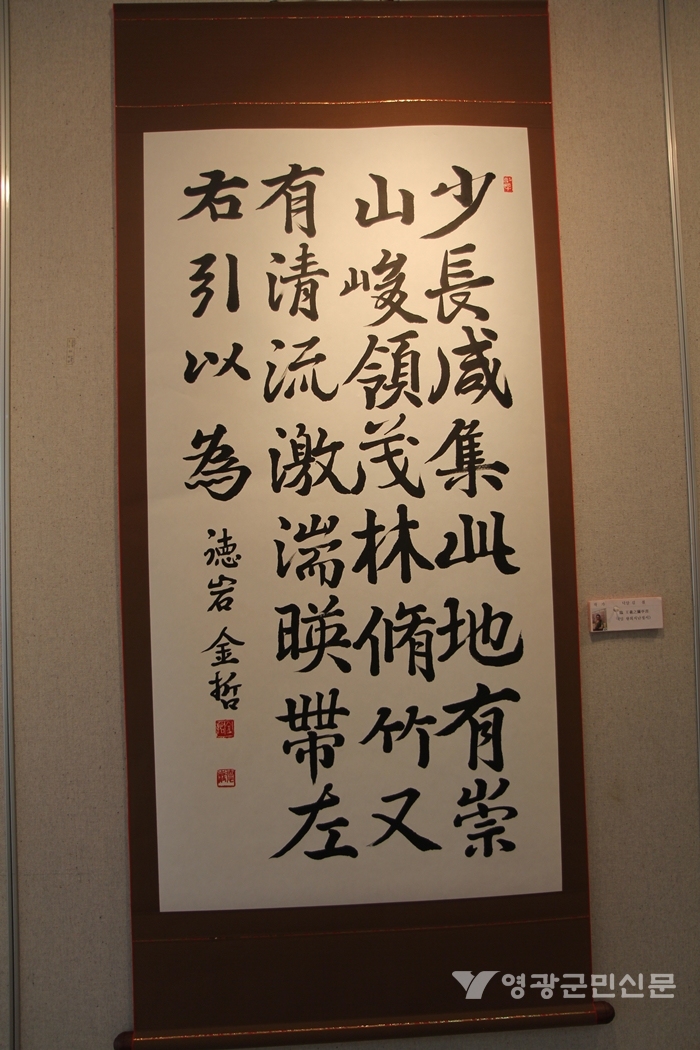 少長咸集此地有崇
山峻領茂林脩竹又
有清流激湍暎帶左
右引以為
德岩 金哲
영광군민신문